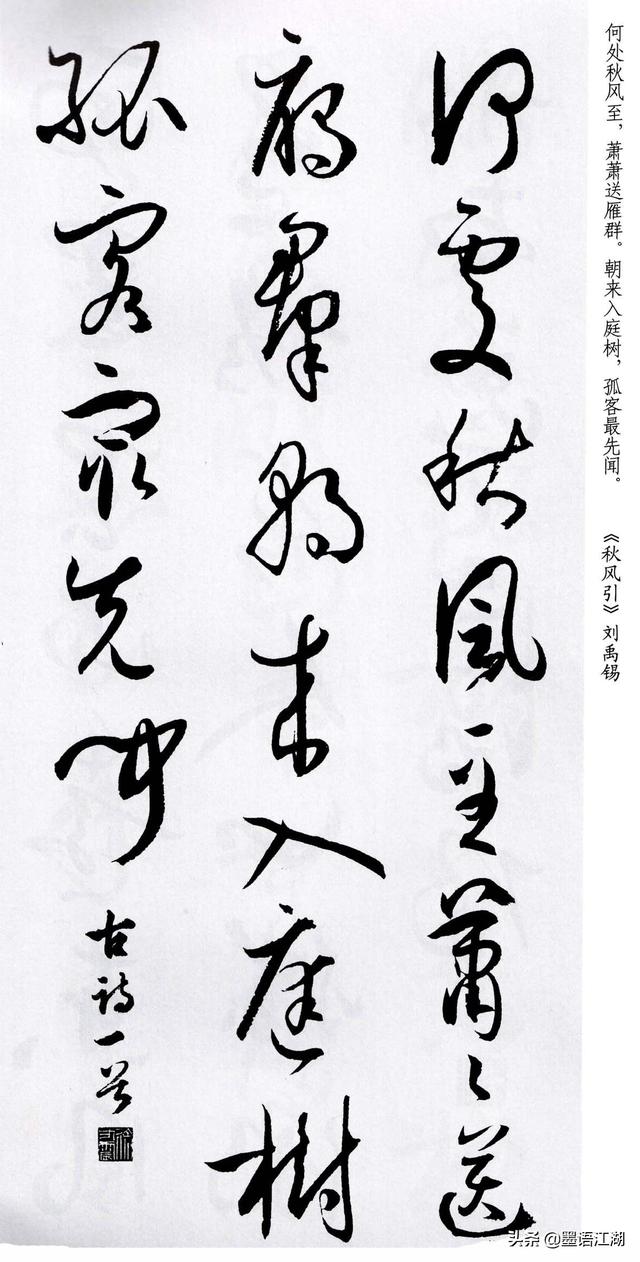 何处秋风至，萧萧送雁群。朝来入庭树，孤客最先闻。 《秋风引》刘禹锡
何處秋風至蕭々送
鴈羣朝来入庭樹
孤客最先聞
古詩一首
头条 @墨语江湖